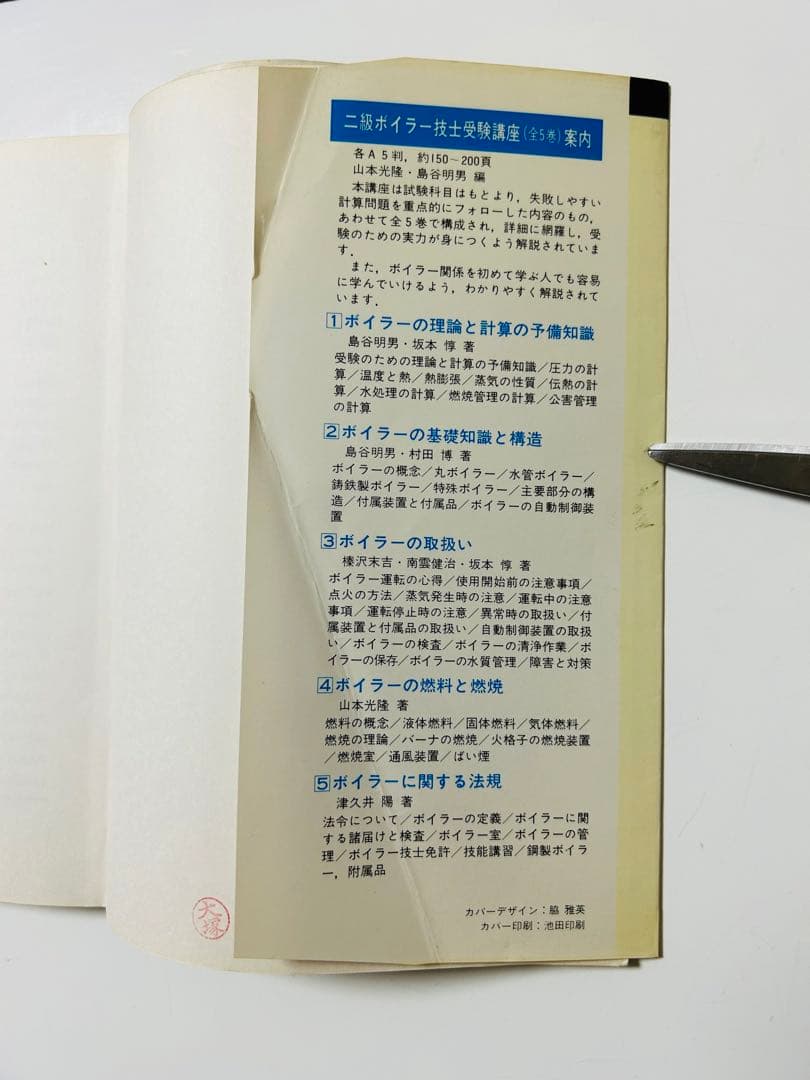 二級ボイラー技士受験講座(全5巻)案内
各A5判，約150～200頁
山本光隆・島谷明男 編
本講座は試験科目はもとより，失敗しやすい
計算問題を重点的にフォローした内容のもの，
あわせて全5巻で構成され，詳細に網羅し，受
験のための実力が身につくよう解説されていま
す．
また，ボイラー関係を初めて学ぶ人でも容易
に学んでいけるよう，わかりやすく解説されて
います．
1 ボイラーの理論と計算の予備知識
島谷明男・坂本 惇 著
受験のための理論と計算の予備知識／圧力の計
算／温度と熱／熱膨張／蒸気の性質／伝熱の計
算／水処理の計算／燃焼管理の計算／公害管理
の計算
2 ボイラーの基礎知識と構造
島谷明男・村田 博 著
ボイラーの概念／丸ボイラー／水管ボイラー／
鋳鉄製ボイラー／特殊ボイラー／主要部分の構
造／付属装置と付属品／ボイラーの自動制御装
置
3 ボイラーの取扱い
榛沢末吉・南雲健治・坂本 惇 著
ボイラー運転の心得／使用開始前の注意事項／
点火の方法／蒸気発生時の注意／運転中の注意
事項／運転停止時の注意／異常時の取扱い／付
属装置と付属品の取扱い／自動制御装置の取扱
い／ボイラーの検査／ボイラーの清浄作業／ボ
イラーの保存／ボイラーの水質管理／障害と対策
4 ボイラーの燃料と燃焼
山本光隆 著
燃料の概念／液体燃料／固体燃料／気体燃料／
燃焼の理論／バーナの燃焼／火格子の燃焼装置
／燃焼室／通風装置／ばい煙
5 ボイラーに関する法規
津久井 陽 著
法令について／ボイラーの定義／ボイラーに関
する諸届けと検査／ボイラー室／ボイラーの管
理／ボイラー技士免許／技能講習／鋼製ボイラ
ー，附属品
カバーデザイン：脇 雅英
カバー印刷：池田印刷
大塚